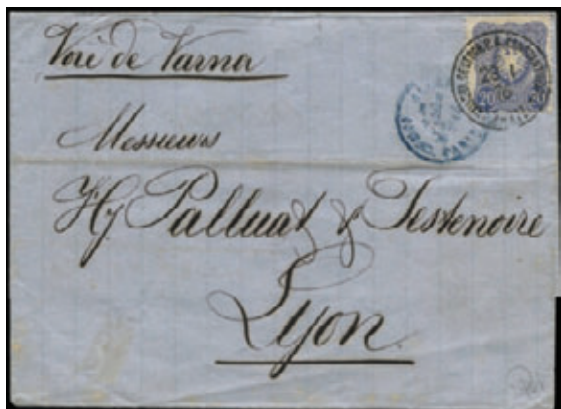 Voie de Varna
Messieurs
Hy Palluat & Testenoire
Lyon
20
20
23 1